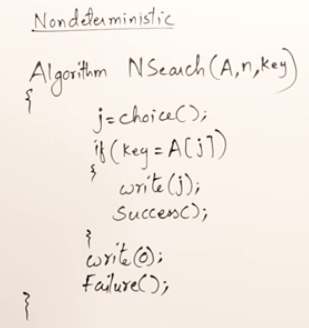 Nondeterministic
Algorithm NSearch(A,n,key)
{
j=choice();
if(key=A[j])
{
write(j);
Success();
}
write(0);
Failure();
}